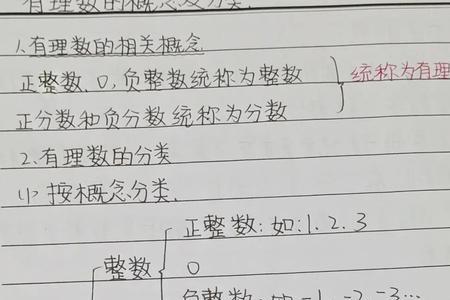 有理数的概念及分类.
1.有理数的相关概念
正整数、0,负整数统称为整数
统称为有理
正分数和负分数统称为分数
2.有理数的分类
(1)按概念分类.
正整数:如:1.2.3
整数
0
负整数:如-1.-2.-3…